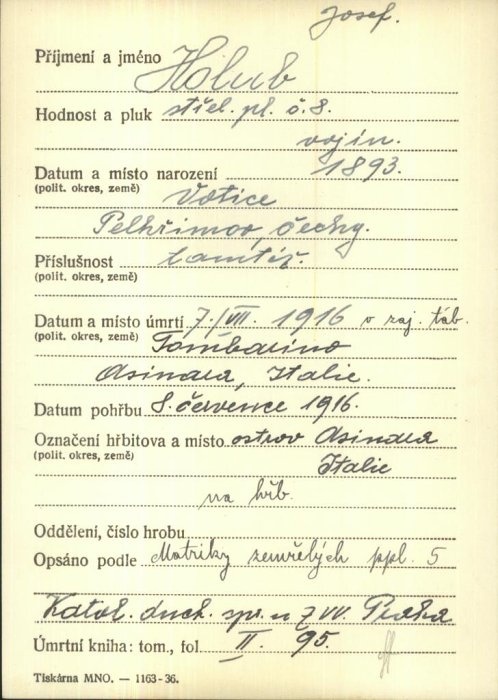 Josef.
Příjmení a jméno Holub
Hodnost a pluk střel. pl. č. 8.
vojín.
Datum a místo narození 1893.
(polit. okres, země) Votice
Pelhřimov, Čechy.
Příslušnost tamtéž.
(polit. okres, země)
Datum a místo úmrtí 7./VII. 1916 v zaj. táb.
(polit. okres, země) Tombarino
Asinara, Italie.
Datum pohřbu 8. července 1916.
Označení hřbitova a místo ostrov Asinara
(polit. okres, země) Italie
na hřb.
Oddělení, číslo hrobu
Opsáno podle Matriky zemřelých ppl. 5
Katol. duch. spr. u ZVV. Praha
Úmrtní kniha: tom., fol. II. 95.
Tiskárna MNO. — 1163-36.